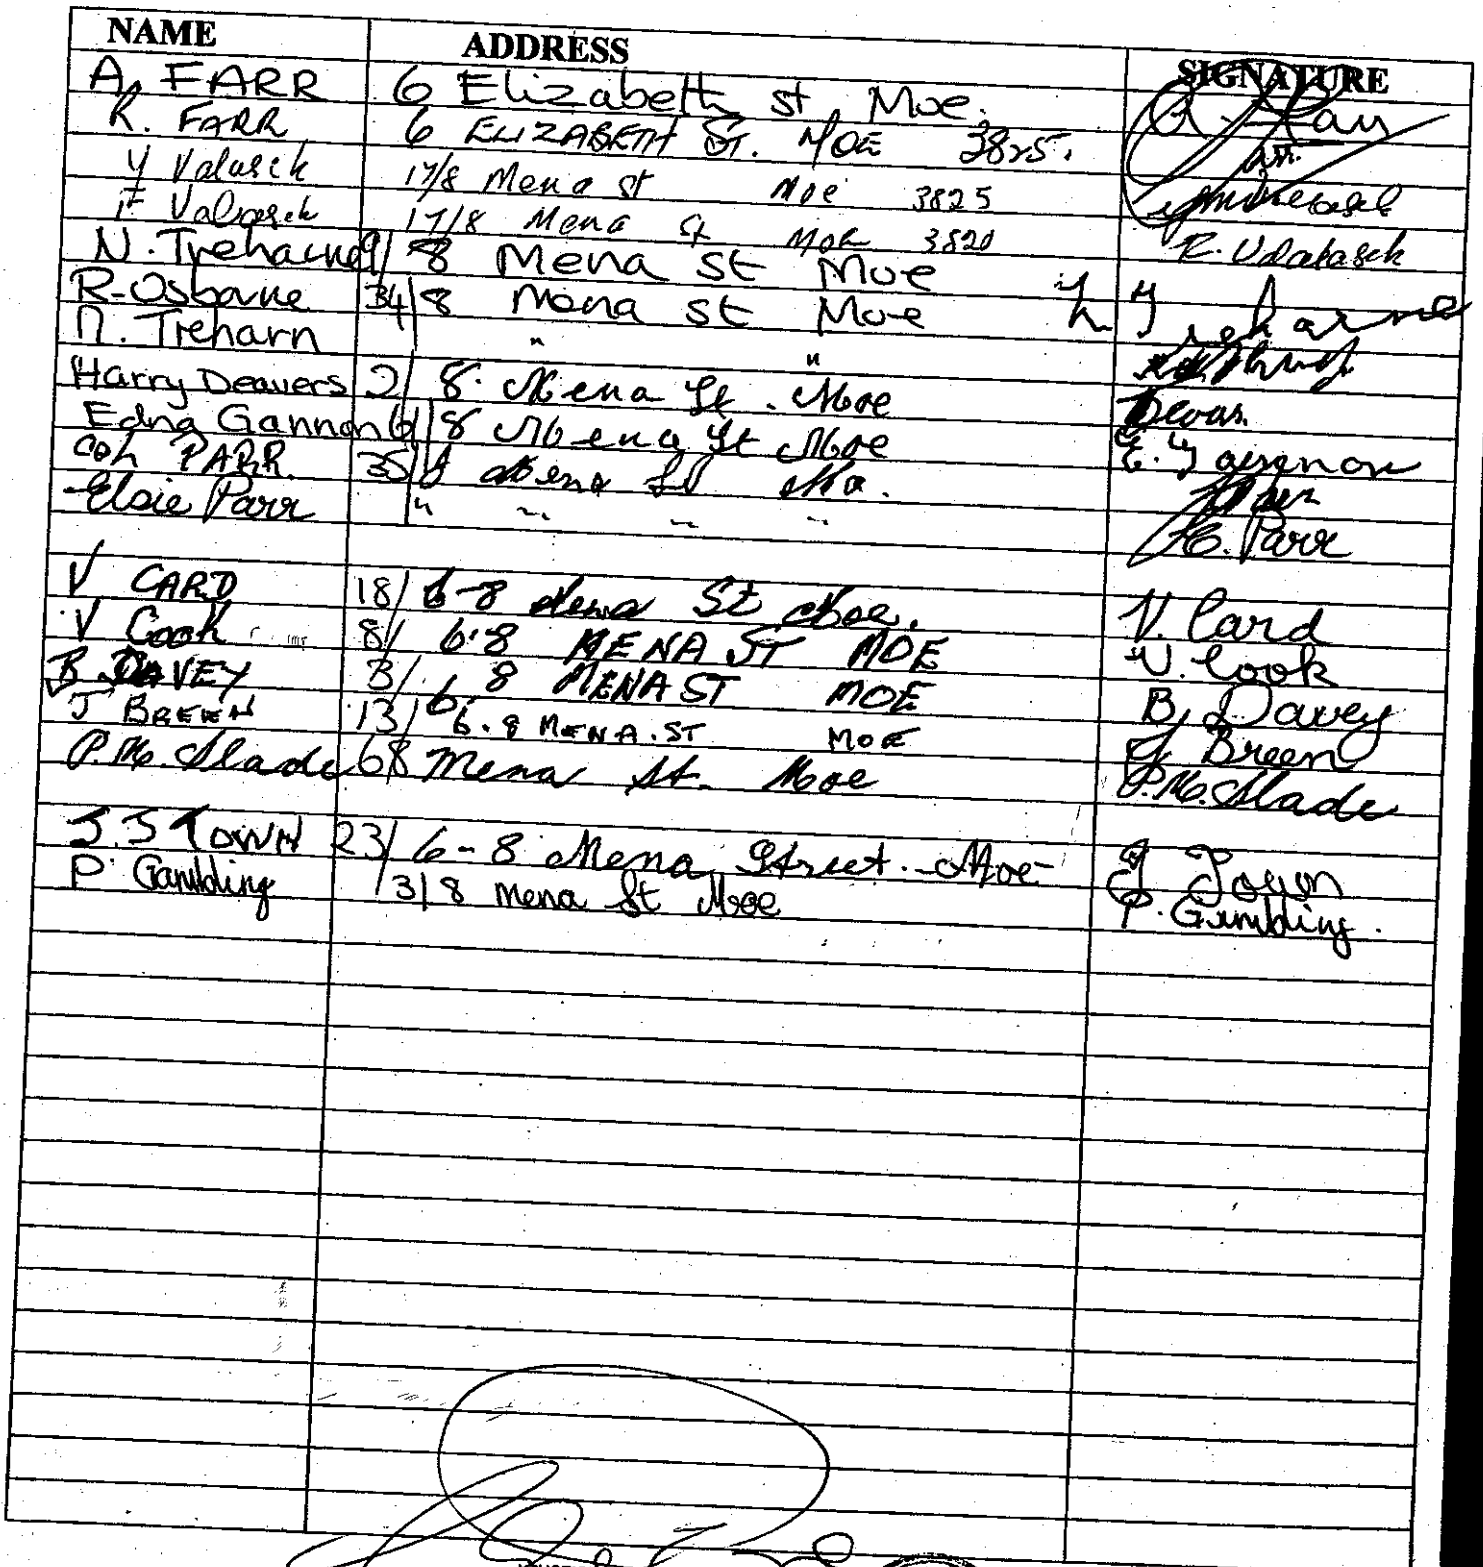 NAME ADDRESS SIGNATURE
A. FARR 6 Elizabeth st Moe. A. Farr
R. FARR 6 ELIZABETH ST. MOE 3825.
Y Valasek 17/8 Mena st Moe 3825
F Valasek 17/8 Mena St Moe 3820
N. Treharne 9/8 Mena St Moe
R-Osborne 34/8 Mena St Moe
N. Treharn " "
Harry Deavers 2/8. Mena St. Moe
Edna Gannon 6/8 Mena St Moe E. Gannon
PARR. 35/8 Mena St Moe.
Elsie Parr " " " " E. Parr
V CARD 18/6-8 Mena St Moe. V. Card
V Cook 8/ 6-8 MENA ST MOE V. Cook
B DAVEY 3/ 6. 8 MENA ST MOE B, Davey
J BREEN 13/ 6-8 MENA. ST MOE J Breen
P.M. Slade 68 Mena St. Moe P.M. Slade
J. S TOWN 23/ 6-8 Mena Street. Moe J Town
P Gambling 13/8 Mena St Moe P. Gambling.